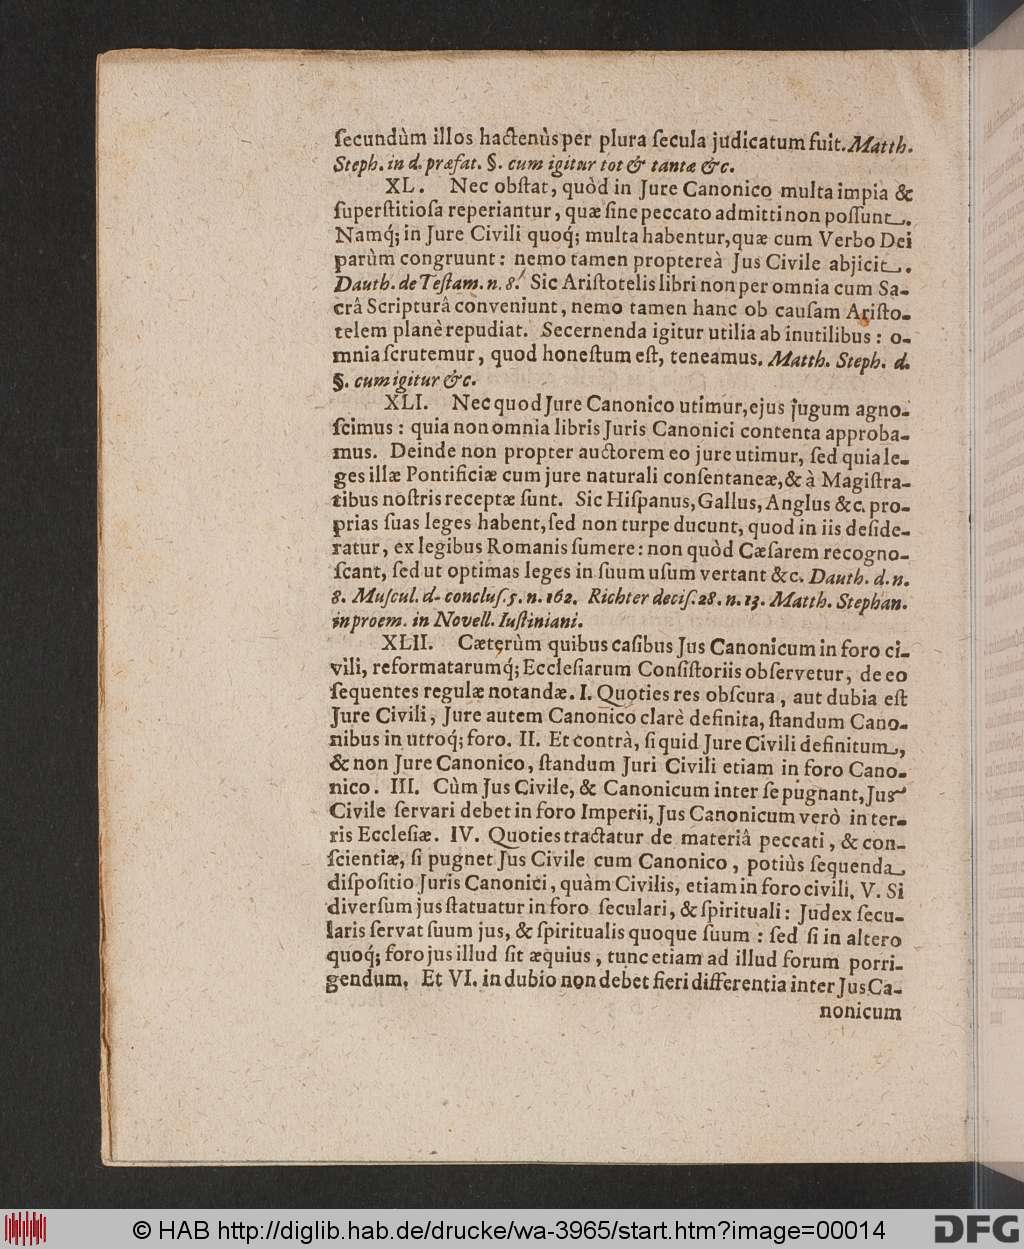 ſecundùm illos hactenùs per plura ſecula judicatum fuit. Matth.
Steph. in d. præfat. §. cum igitur tot & tantæ &c.
XL. Nec obſtat, quòd in Jure Canonico multa impia &
ſuperſtitioſa reperiantur, quæ ſine peccato admitti non poſſunt.
Namq́; in Jure Civili quoq́; multa habentur, quæ cum Verbo Dei
parùm congruunt: nemo tamen proptereà Jus Civile abjicit.
Dauth. de Teſtam. n. 8. Sic Ariſtotelis libri non per omnia cum Sa-
crâ Scripturâ conveniunt, nemo tamen hanc ob cauſam Ariſto-
telem planè repudiat. Secernenda igitur utilia ab inutilibus: o-
mnia ſcrutemur, quod honeſtum eſt, teneamus. Matth. Steph. d.
§. cum igitur &c.
XLI. Nec quod Jure Canonico utimur, ejus jugum agno-
ſcimus: quia non omnia libris Juris Canonici contenta approba-
mus. Deinde non propter auctorem eo jure utimur, ſed quia le-
ges illæ Pontificiæ cum jure naturali conſentaneæ, & à Magiſtra-
tibus noſtris receptæ ſunt. Sic Hiſpanus, Gallus, Anglus &c. pro-
prias ſuas leges habent, ſed non turpe ducunt, quod in iis deſide-
ratur, ex legibus Romanis ſumere: non quòd Cæſarem recogno-
ſcant, ſed ut optimas leges in ſuum uſum vertant &c. Dauth. d. n.
8. Muſcul. d. concluſ. 5. n. 162. Richter deciſ. 28. n. 13. Matth. Stephan.
in proem. in Novell. Iuſtiniani.
XLII. Cæterùm quibus caſibus Jus Canonicum in foro ci-
vili, reformatarumq́; Eccleſiarum Conſiſtoriis obſervetur, de eo
ſequentes regulæ notandæ. I. Quoties res obſcura, aut dubia eſt
Jure Civili, Jure autem Canonico clarè definita, ſtandum Cano-
nibus in utroq́; foro. II. Et contrà, ſi quid Jure Civili definitum,
& non Jure Canonico, ſtandum Juri Civili etiam in foro Cano-
nico. III. Cùm Jus Civile, & Canonicum inter ſe pugnant, Jus
Civile ſervari debet in foro Imperii, Jus Canonicum verò in ter-
ris Eccleſiæ. IV. Quoties tractatur de materiâ peccati, & con-
ſcientiæ, ſi pugnet Jus Civile cum Canonico, potiùs ſequenda
diſpoſitio Juris Canonici, quàm Civilis, etiam in foro civili. V. Si
diverſum jus ſtatuatur in foro ſeculari, & ſpirituali: Judex ſecu-
laris ſervat ſuum jus, & ſpiritualis quoque ſuum: ſed ſi in altero
quoq́; foro jus illud ſit æquius, tunc etiam ad illud forum porri-
gendum. Et VI. in dubio non debet fieri differentia inter Jus Ca-
nonicum
© HAB http://diglib.hab.de/drucke/wa-3965/start.htm?image=00014
DFG